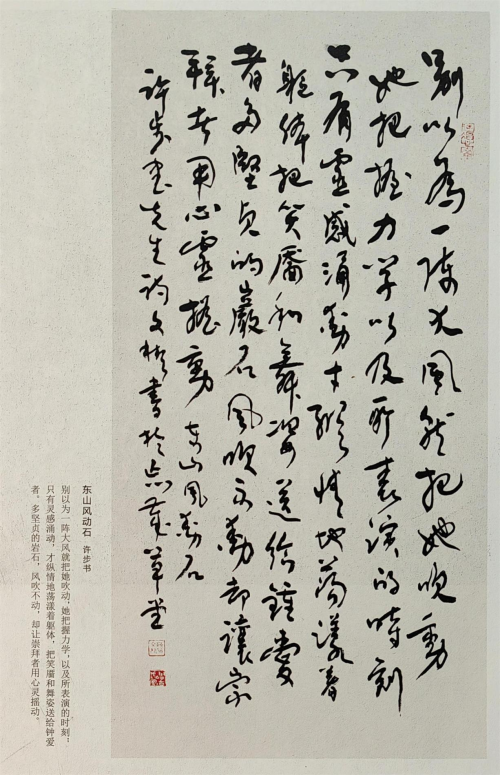 别以為一陣大風就把她吹動
她把握力学以及所表演的時刻
只有靈感涌動才縱情地蕩漾着
躯体把笑靨和舞姿送给鍾愛
者多堅贞的巖石風吹不動却讓崇
拜者用心靈摇動 东山風動石
許步书先生詩文彬書於
草堂
东山风动石 许步书
别以为一阵大风就把她吹动；她把握力学，以及所表演的时刻：
只有灵感涌动，才纵情地荡漾着躯体，把笑靥和舞姿送给钟爱
者。多坚贞的岩石，风吹不动，却让崇拜者用心灵摇动。